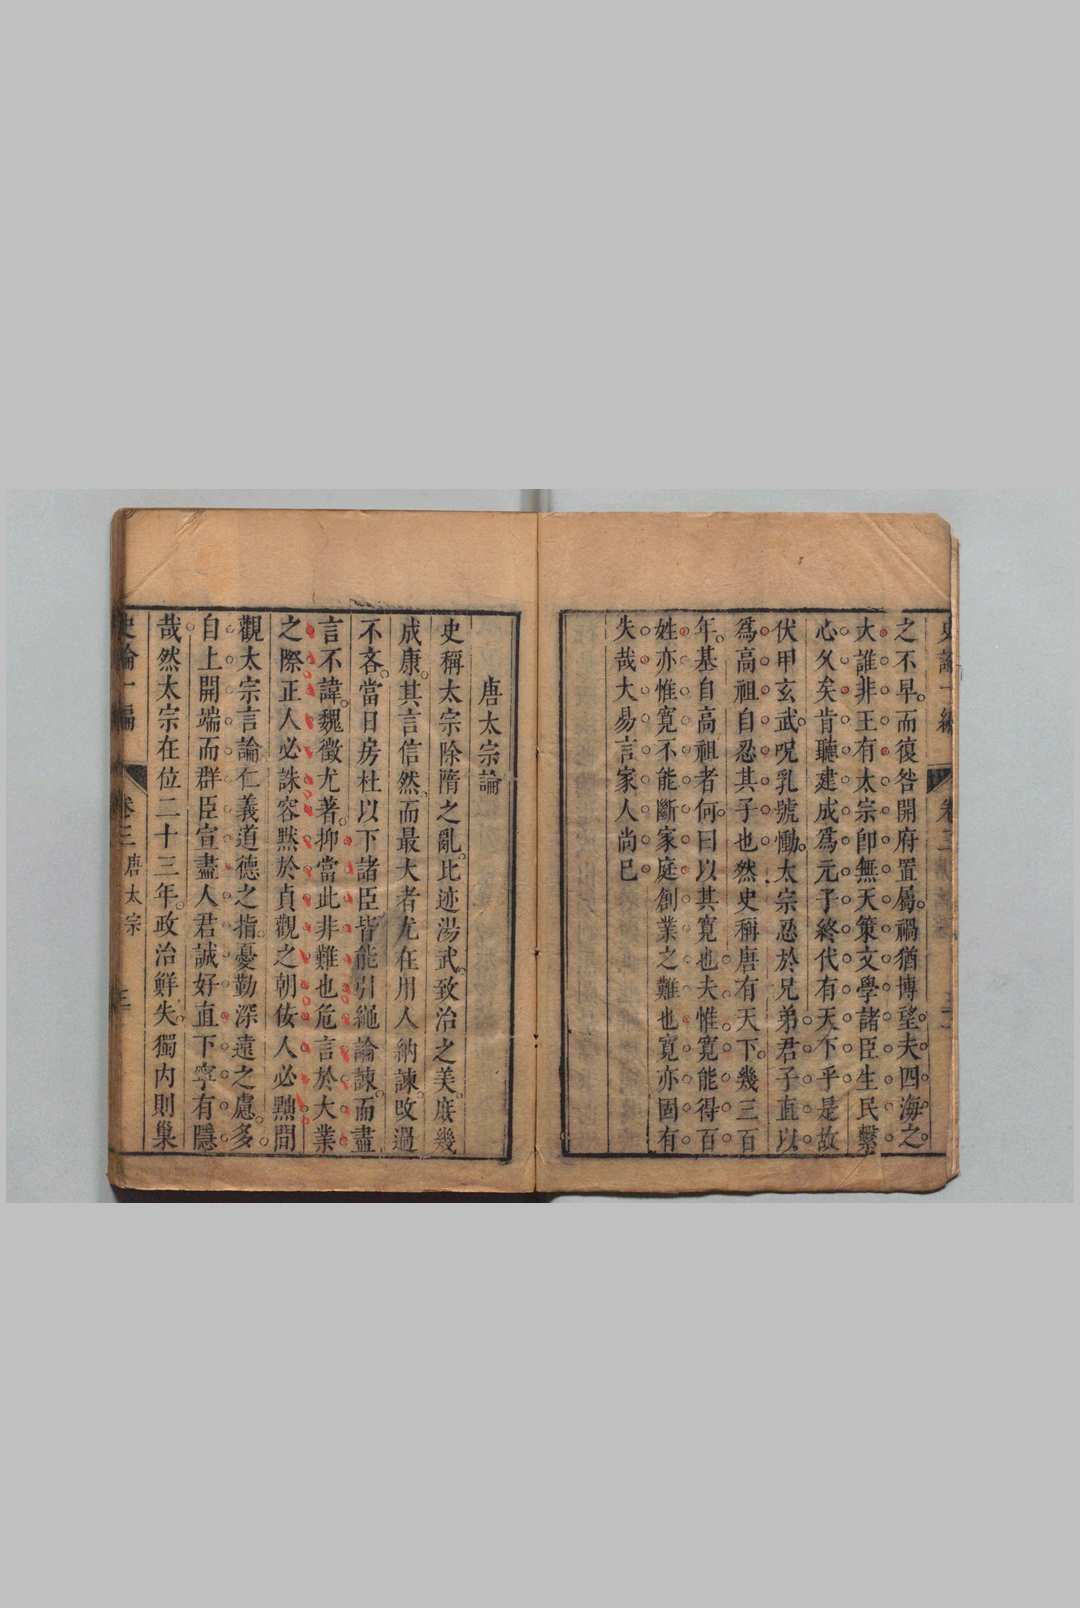 之不早而復咎開府置屬禍猶博望夫四海之
大誰非王有太宗卽無天策文學諸臣生民繫
心久矣肯聽建成爲元子終代有天下乎是故
伏甲玄武吮乳號慟太宗忍於兄弟君子直以
爲高祖自忍其子也然史稱唐有天下幾三百
年基自高祖者何曰以其寬也夫惟寬能得百
姓亦惟寬不能斷家庭創業之難也寬亦固有
失哉大易言家人尚巳
唐太宗論
史稱太宗除隋之亂比迹湯武致治之美庶幾
成康其言信然而最大者尤在用人納諫改過
不吝當日房杜以下諸臣皆能引繩論諫而盡
言不諱魏徵尤著抑當此非難也危言於大業
之際正人必誅容默於貞觀之朝佞人必黜間
觀太宗言論仁義道德之指憂勤深遠之慮多
自上開端而群臣宣盡人君誠好直下寧有隱
哉然太宗在位二十三年政治鮮失獨内則巢
史論一編
卷三
唐太宗
三